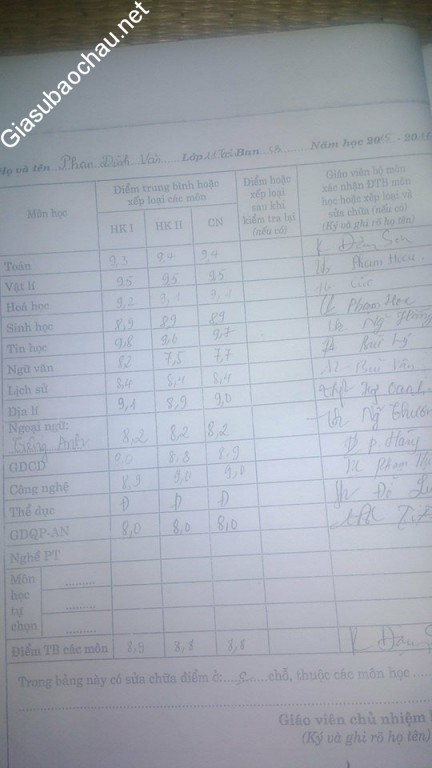 Giasubaochau.net
Họ và tên Phan Đình Văn Lớp Ban Năm học 2015 - 2016
Môn học
Điểm trung bình hoặc xếp loại các môn
HK I HK II CN
Điểm hoặc xếp loại sau khi kiểm tra lại (nếu có)
Giáo viên bộ môn xác nhận ĐTB môn học hoặc xếp loại và sửa chữa (nếu có) (Ký và ghi rõ họ tên)
Toán 9,3 9,4 9,4
Vật lí 9,5 9,5 9,5 Phạm
Hoá học 9,2 9,1 9,1 Cúc
Sinh học 8,9 8,9 8,9 Phạm
Tin học 9,8 9,6 9,7
Ngữ văn 8,2 7,5 7,7
Lịch sử 8,4 8,4 8,4
Địa lí 9,1 8,9 9,0
Ngoại ngữ:
Tiếng Anh 8,2 8,2 8,2
GDCD 9,0 8,8 8,9 P. Hằng
Công nghệ 8,9 9,0 9,0 Phạm
Thể dục Đ Đ Đ Đỗ
GDQP-AN 8,0 8,0 8,0
Nghề PT
Môn học tự chọn
Điểm TB các môn 8,9 8,8 8,8
Trong bảng này có sửa chữa điểm ở: chỗ, thuộc các môn học
Giáo viên chủ nhiệm
(Ký và ghi rõ họ tên)